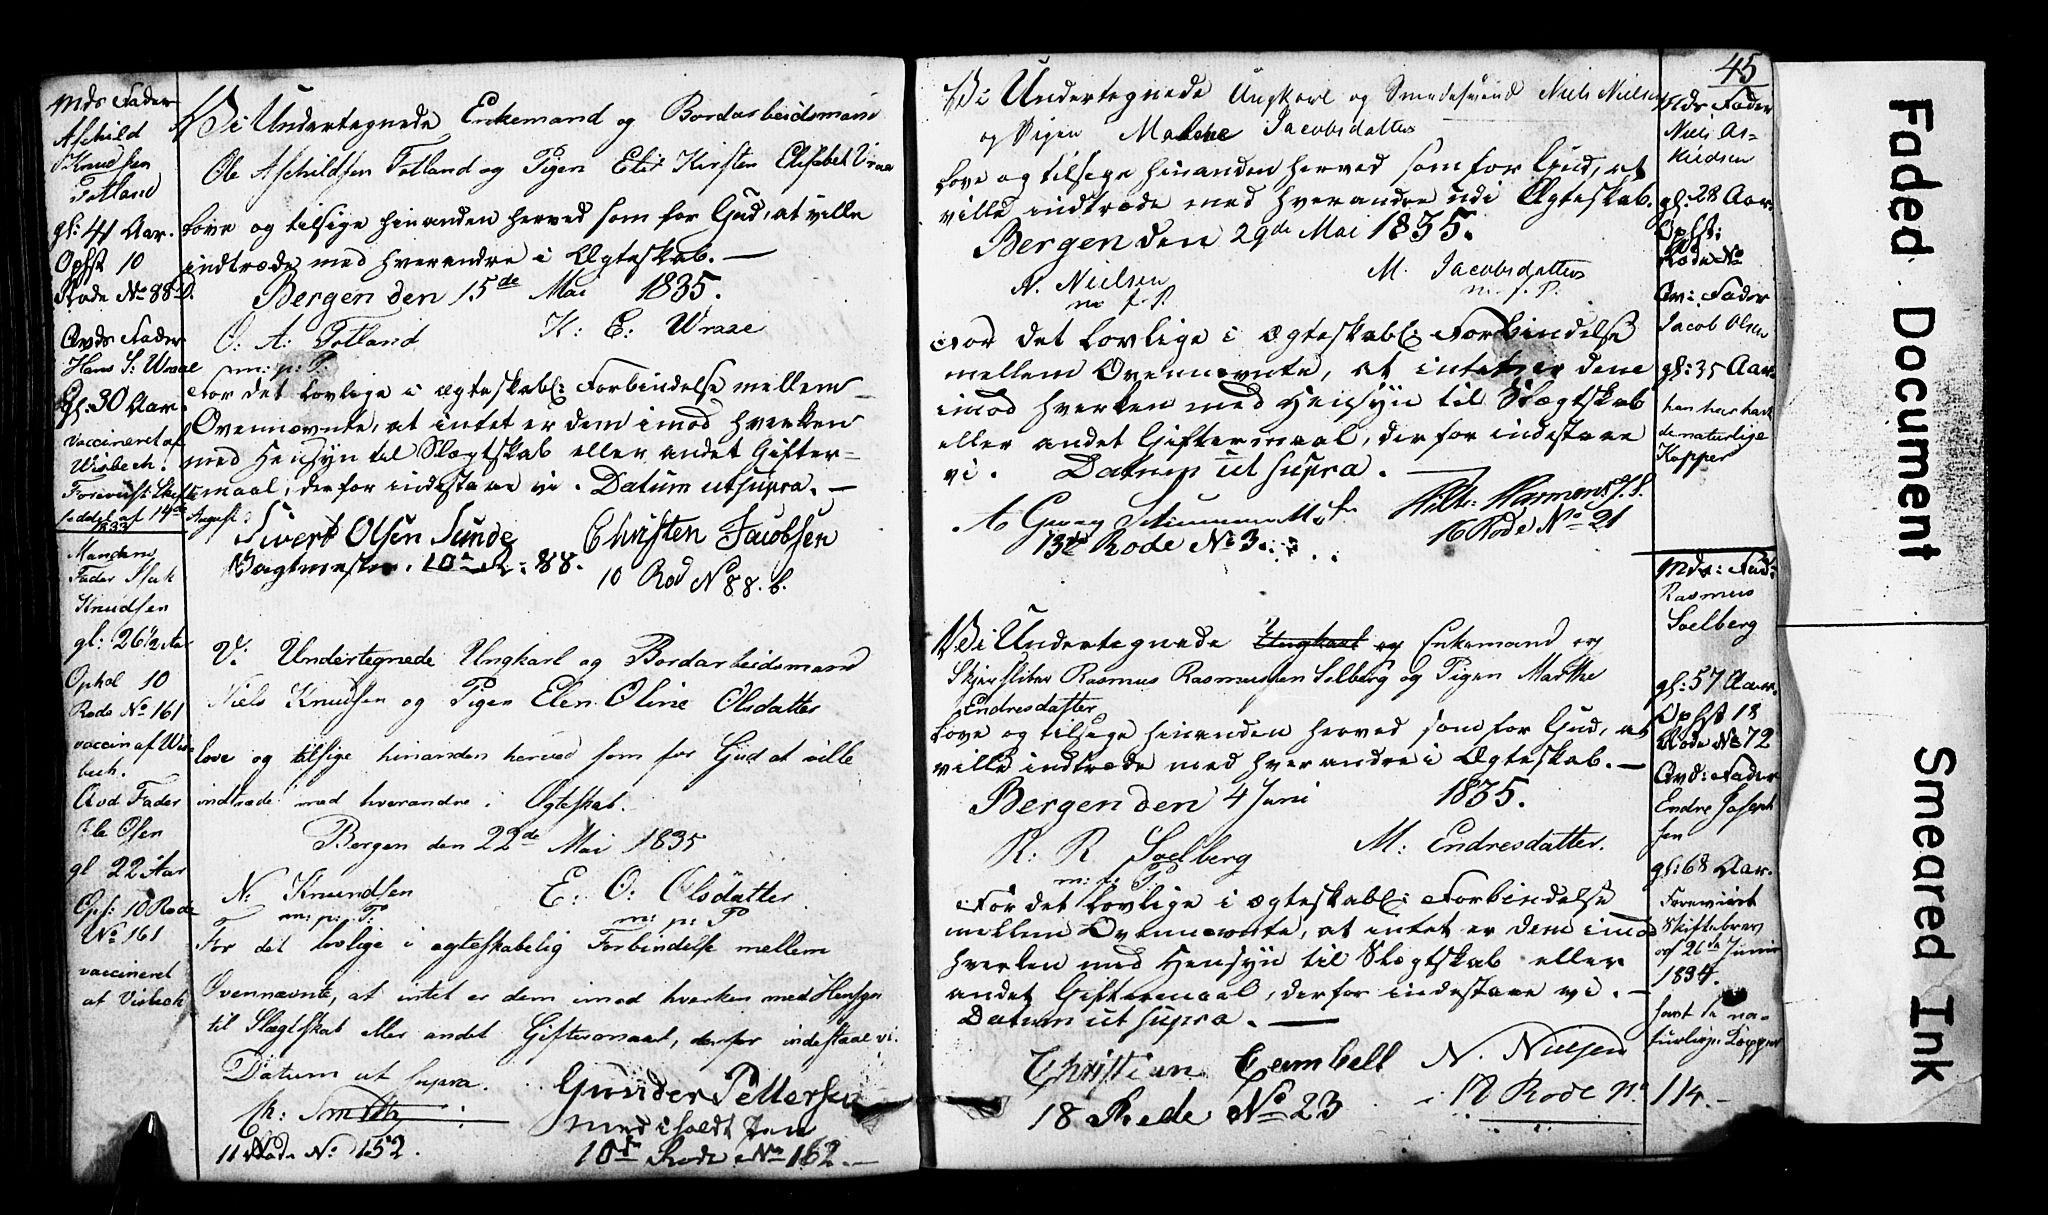 Mds Fader
Aschild
Knudsen
Totland
gl: 41 Aar.
Ophst 10
Rode No 88 b.
Qvds Fader
Hans S: Wraae
gl: 30 Aar.
vaccineret af
Wisbech.
Foreviist Skifte-
seddel af 14de August
1833
Vi Undertegnede Enkemand og Bordarbeidsmand
Ole Aschildsen Totland og Pigen Elis Kirsten Elisabet Vraae
love og tilsige hinanden herved som for Gud, at ville
indtræde med hverandre i Ægteskab. —
Bergen den 15de Mai 1835.
O: A: Totland K: E: Wraae
m: p: P:
For det lovlige i ægteskabl: Forbindelse mellem
Ovennævnte, at intet er dem imod hverken
med Hensyn til Slægtskab eller andet Gifter-
maal, derfor indestaae vi. Datum ut supra. —
Sivert Olsen Sunde Christen Jacobsen
Vagtmester. 10de R: 88. 10 Rod No 88. b.
Mandens
Fader Isak
Knudsen
gl: 26½ Aar
Ophol 10
Rode No 161
vaccin af Wis-
bech.
Qvd Fader
Ole Olsen
gl 22 Aar
Ops: 10 Rode
No 161
vaccineret
af Visbech
Vi Undertegnede Ungkarl og Bordarbeidsmand
Niels Knudsen og Pigen Elen Oline Olsdatter
love og tilsige hinanden herved som for Gud at ville
indtræde med hverandre i Ægteskab.
Bergen den 22de Mai 1835
N: Knundsen E: O: Olsdatter
m: p: P: m: p: P
For det lovlige i ægteskabelig Forbindelse mellem
Ovennævnte, at intet er dem imod hverken med Hensyn
til Slægtskab eller andet Giftermaal, derfor indestaae vi.
Datum ut supra.
Ch: Smith Gunder Pettersen
11 Rode No 152. 10de Rode No 162. —
45
Vi Undertegnede Ungkarl og Smedesvend Niels Nielsen
og Pigen Malene Jacobsdatter
love og tilsige hinanden herved som for Gud, at
ville indtræde med hverandre udi Ægteskab.
Bergen den 29de Mai 1835.
N. Nielsen M. Jacobsdatter
m. f. P. m. f. P.
For det lovlige i ægteskabl: Forbindelse
mellem Ovennævnte, at intet er dem
imod hverken med Hensyn til Slægtskab
eller andet Giftermaal, derfor indestaae
vi. Datum ut supra. —
13de Rode No 3. 16 Rode No 21
Mds Fader
Niels As-
kildsen
gl: 28 Aar.
Ophst:
Rode No
Qv: Fader
Jacob Olsen
gl: 35 Aar.
han har havt
de naturlige
Kopper
Vi Undertegnede Ungkarl og Enkemand og
Skjærsliber Rasmus Rasmussen Solberg og Pigen Marthe
Endresdatter
love og tilsige hinanden herved som for Gud, at
ville indtræde med hverandre i Ægteskab. —
Bergen den 4 Juni 1835.
R: R Soelberg M: Endresdatter.
m: p: P.
For det lovlige i ægteskabl: Forbindelse
mellem Ovennævnte, at intet er dem imod
hverken med Hensyn til Slægtskab eller
andet Giftermaal, derfor indestaae vi. —
Datum ut supra. —
Christian Cambell N. Nielsen
18 Rode No 23 Rode No 114. —
Mds: Fad:
Rasmus
Soelberg
gl: 57 Aar.
Ophst 18
Rode No 72
Qvd: Fader
Endre Joseph-
sen
gl: 68 Aar.
Foreviist
Skiftebrev
af 26de Junii
1834.
havt de na-
turlige Kopper
Faded Document
Smeared Ink